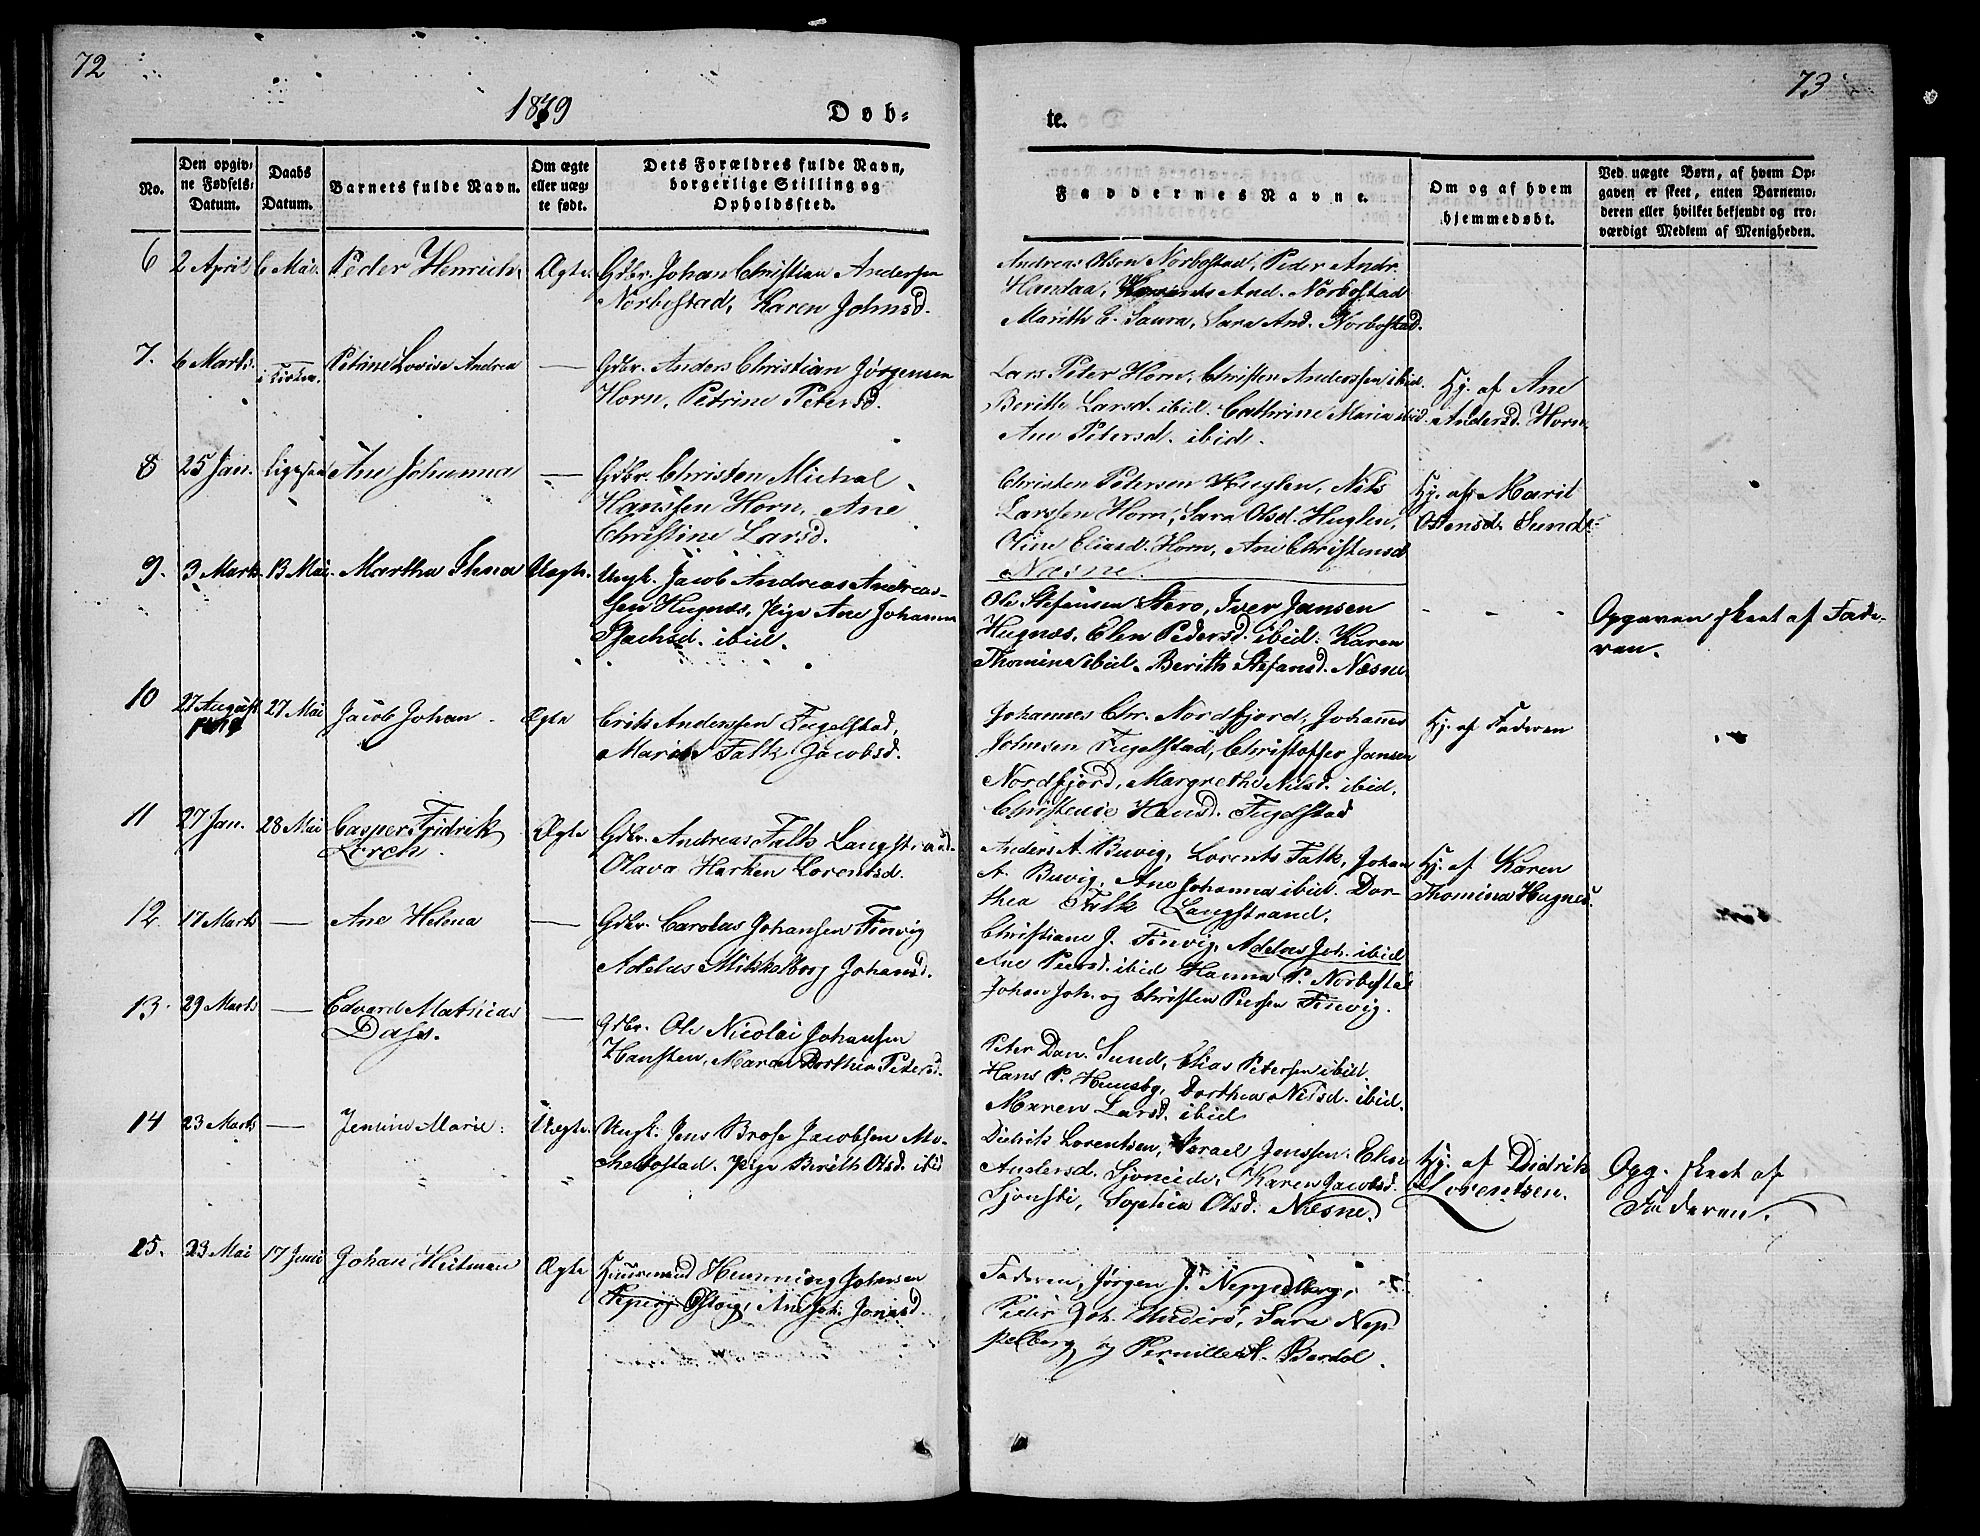 72
1849
Døb-
No.
Den opgiv-
ne Fødsels-
Datum.
Daabs
Datum.
Barnets fulde Navn.
Om ægte
eller uæg-
te født.
Dets Forældres fulde Navn,
borgerlige Stilling og
Opholdssted.
6 2 April 6 Mai Peder Henrich Ægte Gdbr. Johan Christian Andersen
Norbostad, Karen Johnsd.
7. 6 Marts i Kirken. Petrine Lovise Andrea — Gdbr. Anders Christian Jørgensen
Horn, Petrine Petersd.
8 25 Jan. Ligesaa Ane Johanna — Gdbr. Christen Michal
Hanssen Horn, Ane
Christine Larsd.
9. 3 Marts 13 Mai. Martha Uægte. Ungk. Jacob Andreas Andreas-
sen Hugnæs, Pige Ane Johanna
ibid.
10 27 August 27 Mai Jacob Johan Ægte Erik Anderssen Fugelstad,
Maren Falk Jacobsd.
11 27 Jan. 28 Mai Casper Fridrik Ægte Gdbr. Andreas Falk Langstrand
Lerch. Olava Harken Lorentsd.
12. 17 Marts — Ane Helena — Gdbr. Carolus Johansen Finvig
Adelus Mikkelborg Johansd.
13. 29 Marts — Edvard Mathias —
Dass. Gdbr. Ole Nicolai Johansen
Hansten, Maren Dorthea Petersd.
14 23 Marts — Jenine Marie. Uægte. Ungk. Jens Brose Jacobsen
Pige Berith Olsd. ibid
15. 23 Mai 17 Juni Johan Heitman Ægte Huusmand Henning Johnsen
Ane Joh. Jonasd.
73
te.
Faddernes Navne.
Om og af hvem
hjemmedøbt.
Ved uægte Børn, af hvem Op-
gaven er skeet, enten Barnemo-
deren eller hvilket bekjendt og tro-
værdigt Medlem af Menigheden.
Andreas Olsen Norbostad, Peder Andr.
Handaa, And. Norbostad
Marith E. Saura, Sara And. Norbostad.
Lars Peter Horn, Christen Anderssen ibid. Hj. af Ane
Berith Larsd. ibid. Cathrine Maria ibid. Andersd. Horn
Ane Petersd. ibid.
Christen Petersen Huglen, Nils Hj. af Marit
Larssen Horn, Sara Olsd. Huglen, Ostensd. Sund
Oline Eliasd. Horn, Ane Christensd
Næsne.
Ole Stefensen Stero, Iver Jansen - - - Opgaven skeet af Fade-
Hugnæs, Elen Pedersd. ibid. Karen ren.
Thomina ibid. Berith Stefansd. Næsne
Johannes Chr. Nordfjord, Johannes Hj. af Faderen
Johnsen Fugelstad, Christoffer Jansen
Nordfjord, Margrethe Nilsd. ibid.
Christense Hansd. Fugelstad
Anders A. Buvig, Lorents Falk, Johan Hj. af Karen
A. Buvig, Ane Johanna ibid. Dor- Thomina Hugnes.
thea Falk Langstrand.
Christiane J. Finvig, Adelus Joh. ibid
Ane Peersd. ibid Hanna P. Norbostad
Johan Joh. og Christen Peersen Finvig.
Peter Dan. Sund, Elias Petersen ibid.
Hans P. Dorthea Nilsd. ibid.
Maren Larsd. ibid
Didrik Lorentsen, Israel Jenssen. Elen Hj. af Didrik Opg. skeet af
Andersd. Sjoneide, Karen Jacobsd. Lorentsen. Faderen.
Sjonsti, Sophia Olsd. Næsne.
Faderen, Jørgen J. Neppelberg,
Peder Joh. Sara Nep-
pelberg og Pernille A. Bardal.